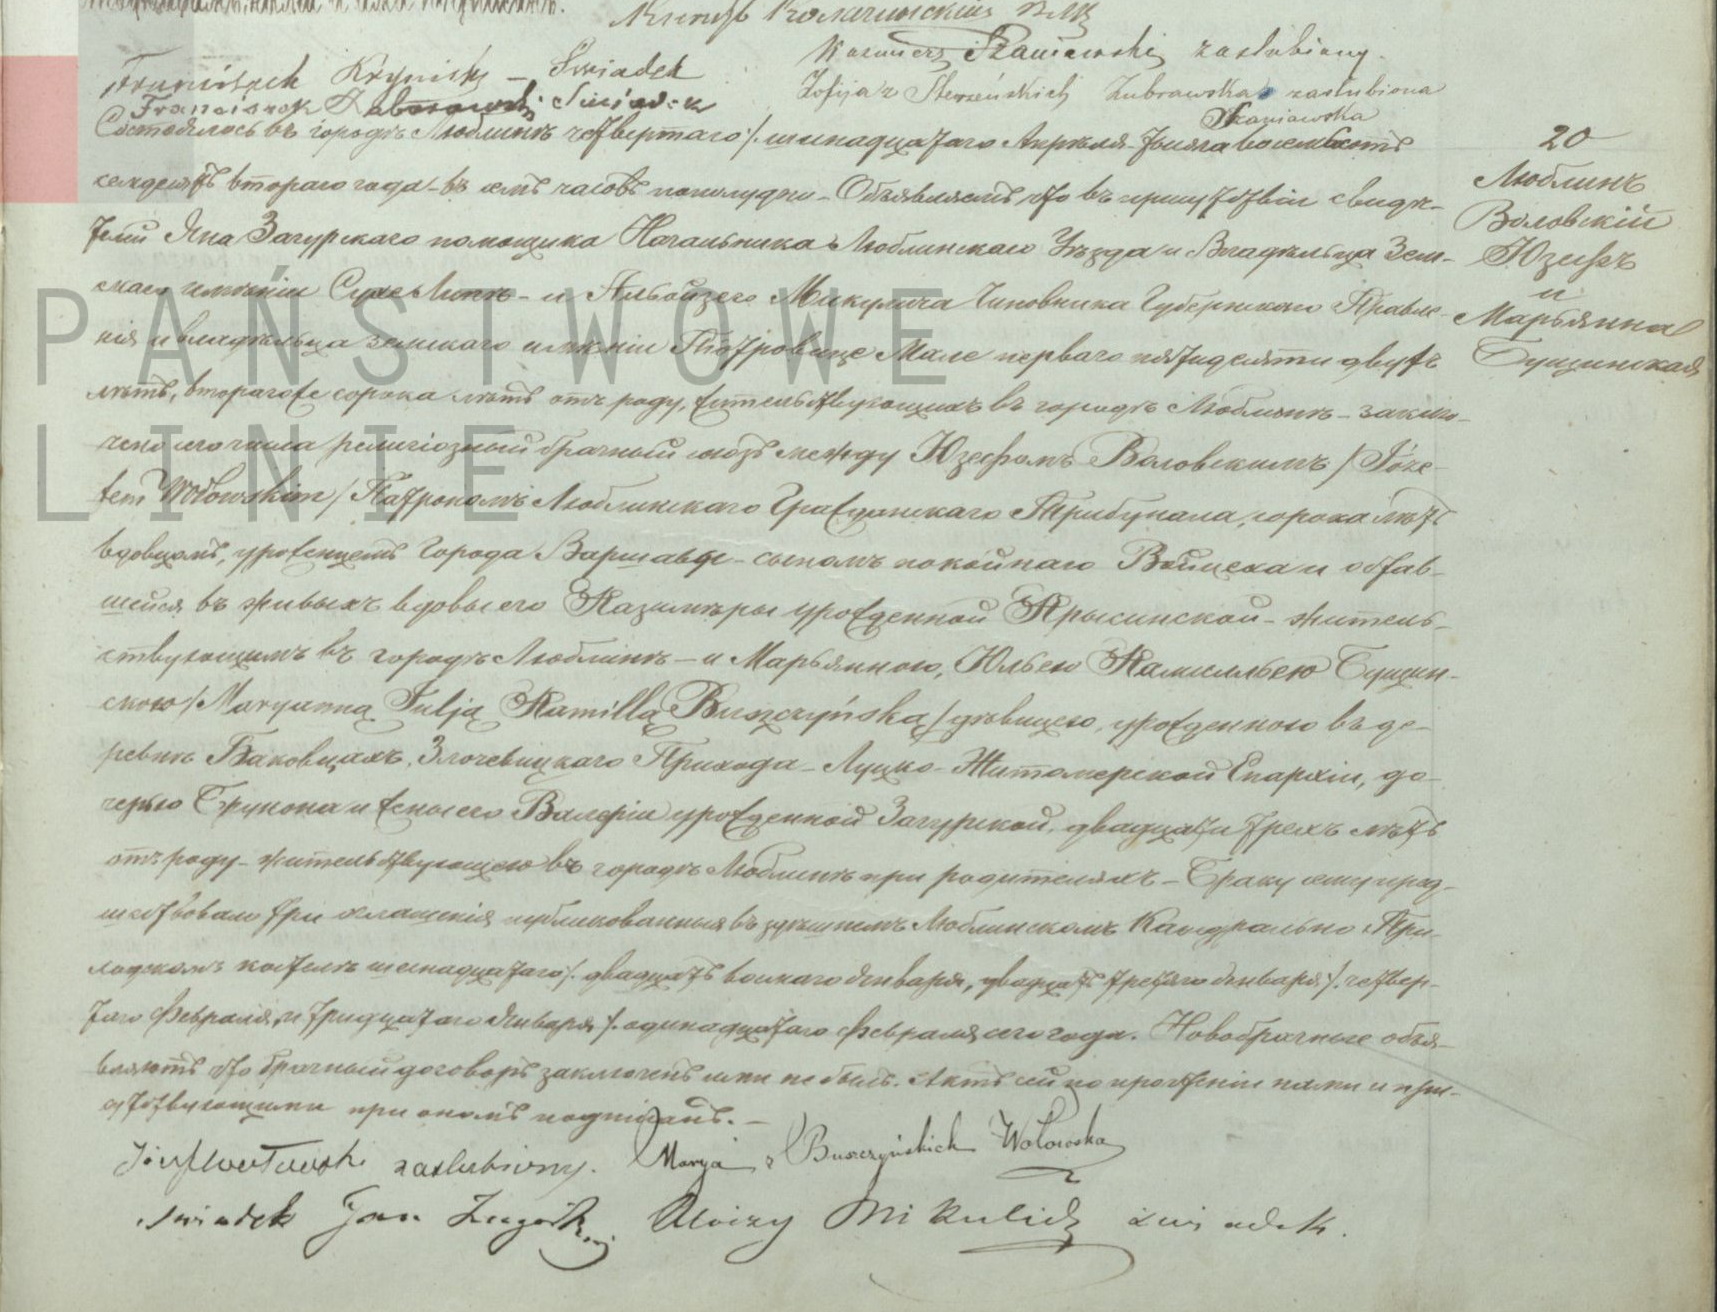 Franciszek Krynicki – Swiadek
Kazimierz Szaniawski zaslubiony.
Franciszek Swiadek
Zofija z Zubrowska zaslubiona
Szaniawska
20
Люблинъ
Воловскій
Юзефъ
и
Марьянна
Бущинская
Состоялось въ городѣ Люблинѣ четвертаго /. шестнадцатаго Апрѣля тысяча восемьсотъ
семдесятъ втораго года – въ семь часовъ пополудню – Объявляемъ что въ присутствіи свидѣ-
телей Яна Загурскаго помощника Начальника Люблинскаго Уѣзда и Владѣльца Зем-
скаго имѣнія – и Алойзего Микулича Чиновника Губернскаго Правле-
нія и владѣльца земскаго имѣнія Піотровице Мале перваго пятидесяти двухъ
лѣтъ, втораго же сорока лѣтъ отъ роду, жительствующихъ въ городѣ Люблинѣ – заклю-
чено сего числа религіозный брачный союзъ между Юзефомъ Воловскимъ / Józe-
fem Wołowskim / Патрономъ Люблинскаго Гражданскаго Трибунала, сорока лѣтъ
вдовцомъ, урожденцемъ города Варшавы – сыномъ покойнаго Войцеха и остав-
шейся въ живыхъ вдовы его Казимѣры урожденной Крысинской – житель-
ствующимъ въ городѣ Люблинѣ – и Марьянною, Юльею Камилльею Бущин-
скою / Maryanna Julja Kamilla Buszczyńska / дѣвицею, урожденною въ де-
ревнѣ Баковцахъ, Злочевицкаго Прихода – Луцко-Житомерской Епархіи, до-
черью Брунона и жены его Валеріи урожденной Загурской, двадцати трехъ лѣтъ
отъ роду – жительствующею въ городѣ Люблинѣ при родителяхъ – Браку сему пред-
шествовало три оглашенія публикованныя въ здѣшнемъ Люблинскомъ Каѳедрально При-
ходскомъ костелѣ шестнадцатаго /. двадцать восьмаго Января, двадцать третьяго Января /. четвер-
таго Февраля, и тридцатаго Января /. одинадцатаго Февраля сего года. Новобрачные объя-
вляютъ что брачный договоръ заключенъ ими не былъ. Актъ сей по прочтеніи нами и при-
сутствующими при ономъ подписанъ. –
Józef Wołowski zaslubiony. Marya z Buszczyńskich Wołowska
swiadek Jan Zagórski Aloizy Mikulicz swiadek.
PAŃSTWOWE
LINIE